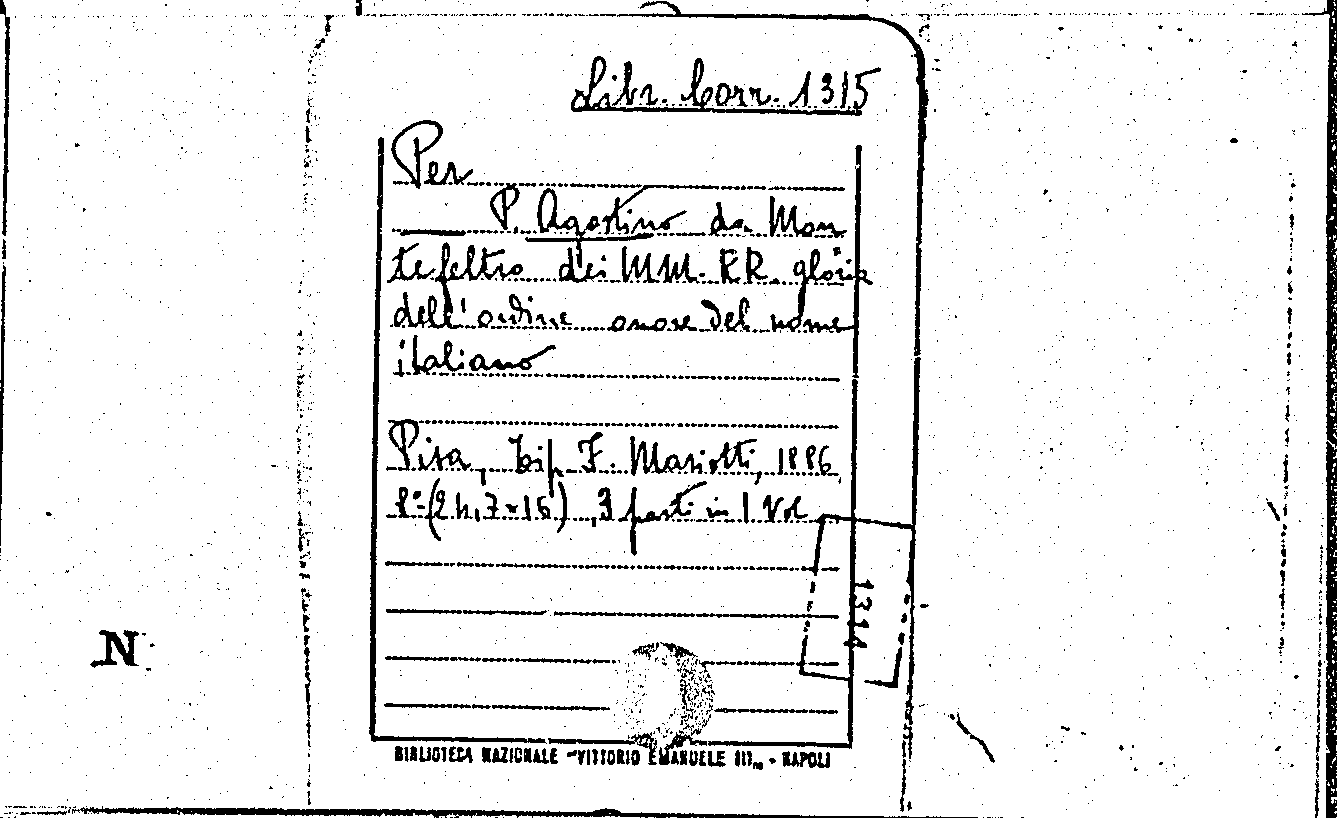 Libr. Corr. 1315
Per
P. Agostino da Mon
tefeltro dei MM. RR. gloria
dell'ordine onore del nome
italiano
Pisa, Tip. F. Mariotti, 1886
8º (24,7×16) 3 parti in 1 Vol
1314
N
BIBLIOTECA NAZIONALE "VITTORIO EMANUELE III„ - NAPOLI